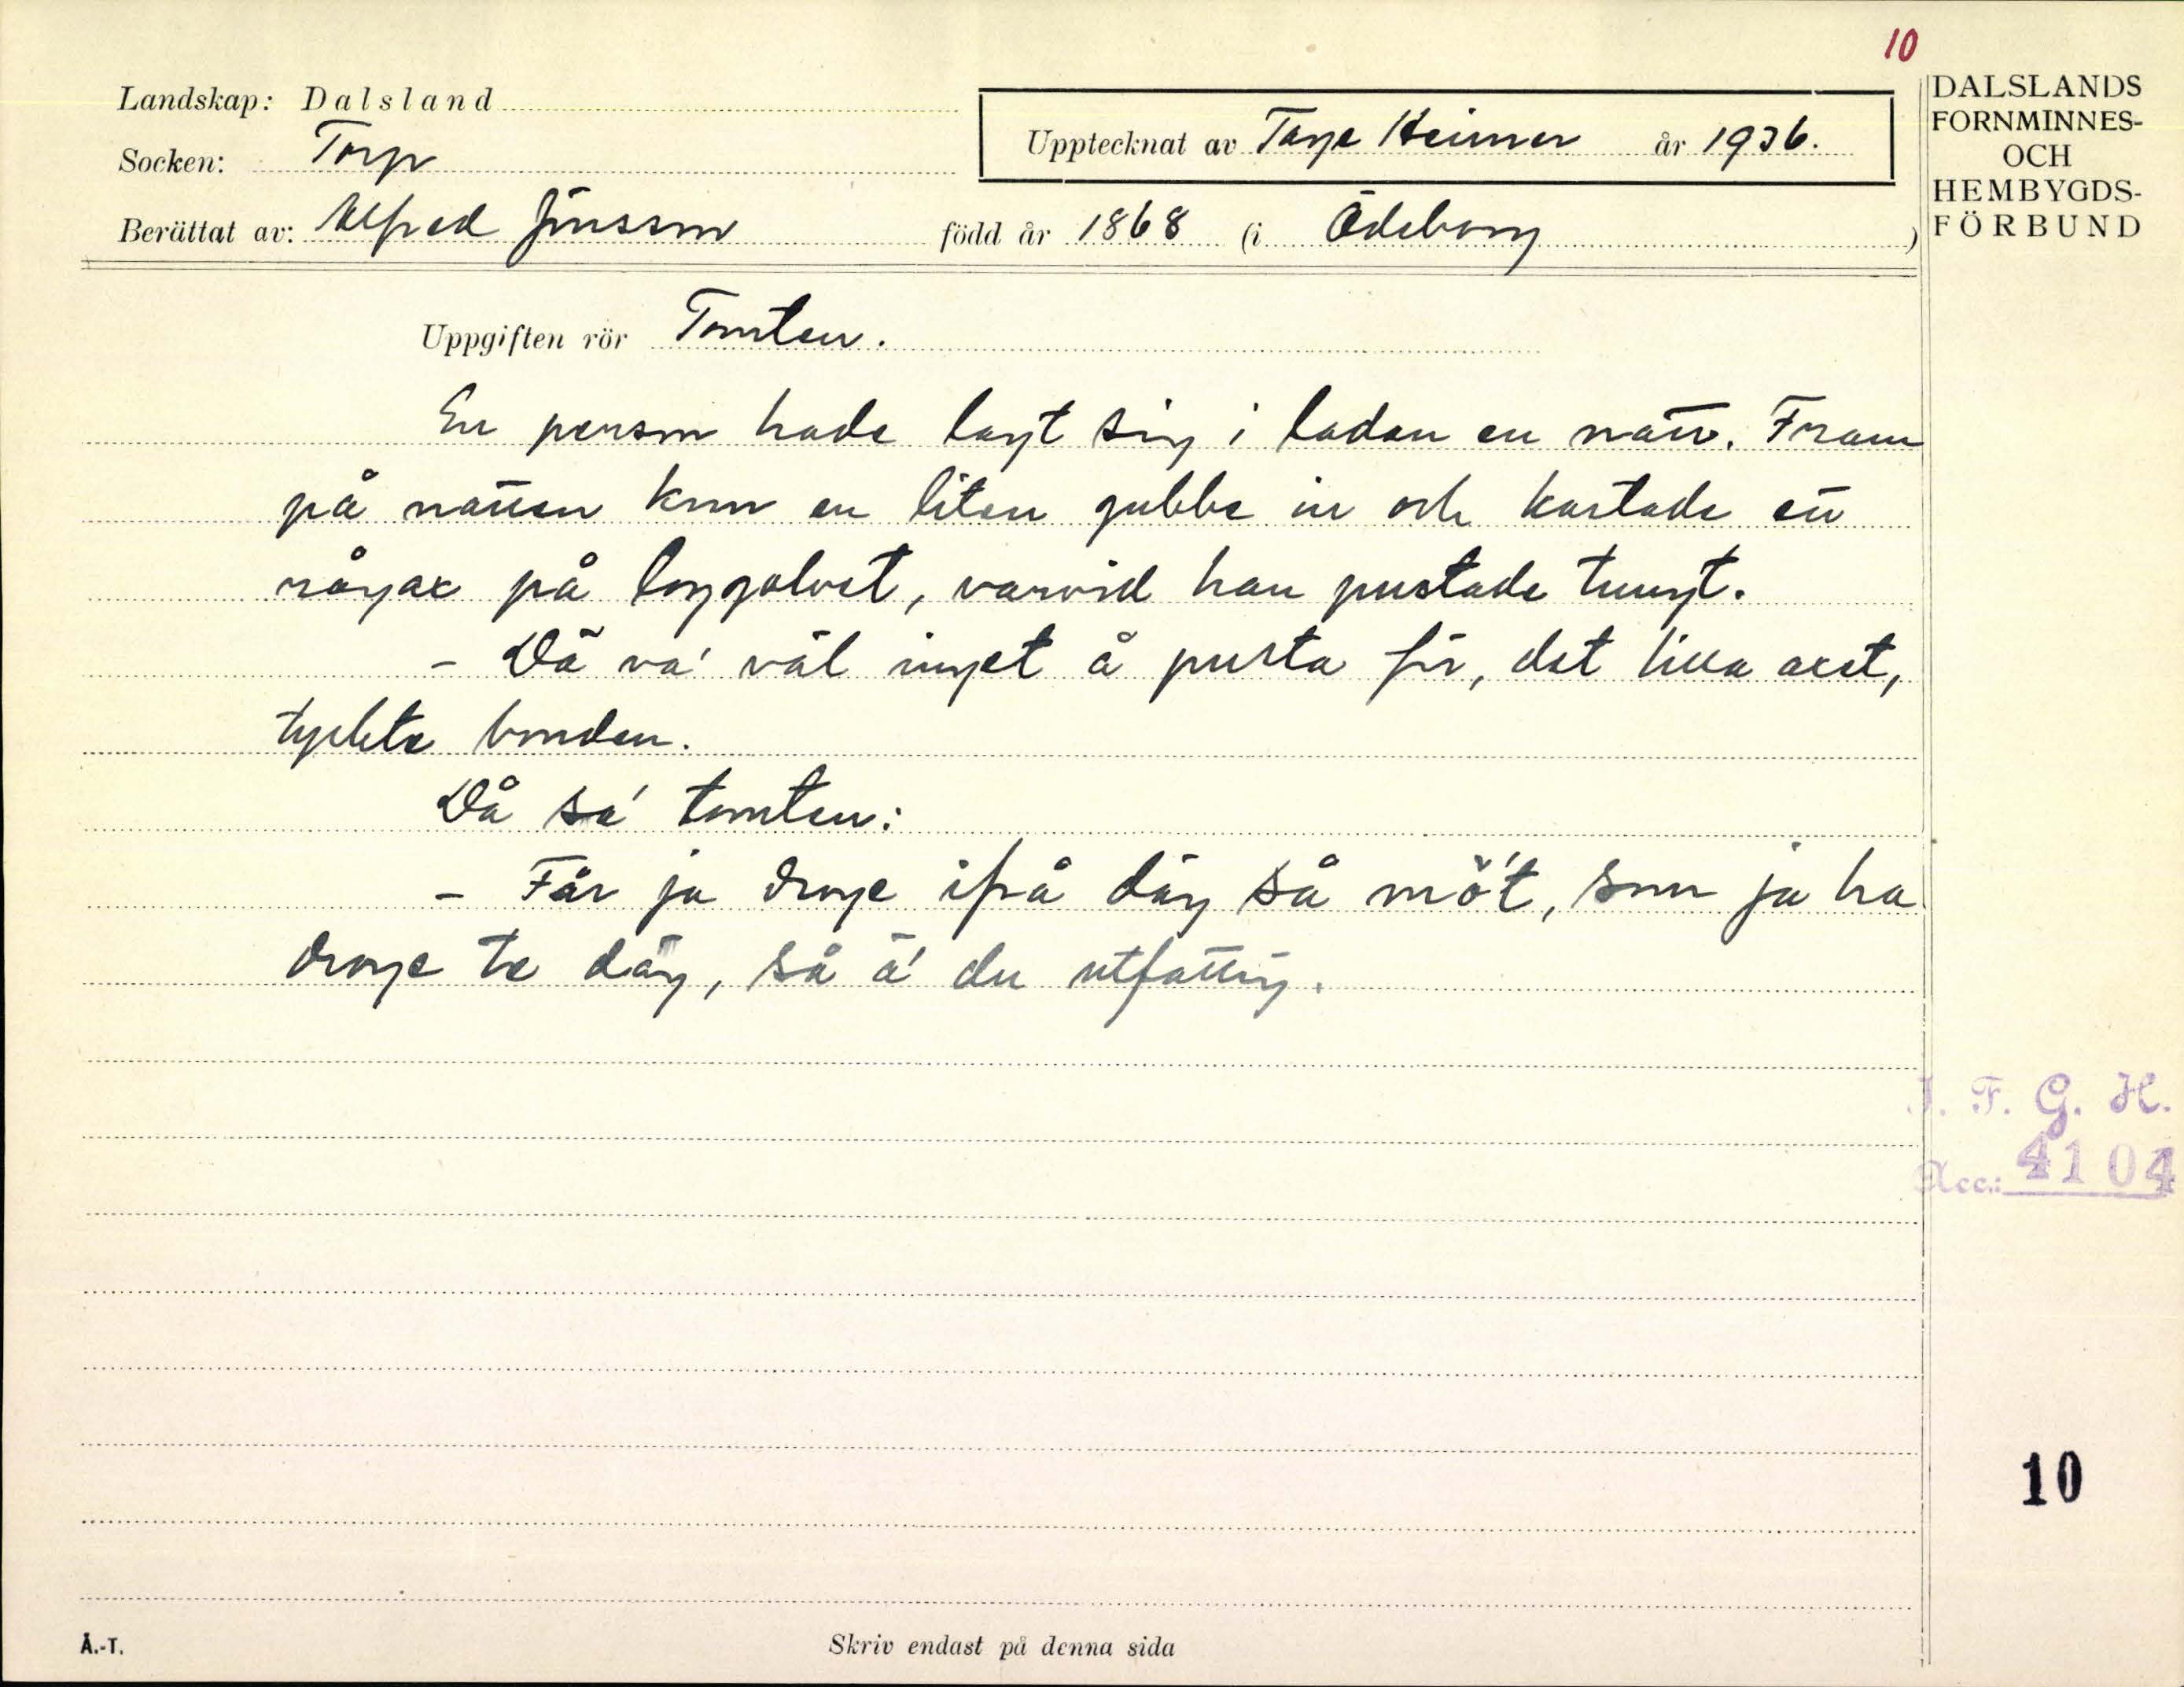 10
DALSLANDS
FORNMINNES-
OCH
HEMBYGDS-
FÖRBUND
Landskap: Dalsland
Upptecknat av Tage Heimer år 1936.
Socken: Torp
Berättat av: Alfred Jönsson född år 1868 (i Ödeborg )
Uppgiften rör Tomten.
En person hade lagt sig i ladan en natt. Fram
på natten kom en liten gubbe in och kastade ett
rågax på loggolvet, varvid han pustade tungt.
- Dä va' väl inget å pusta för, det lilla axet,
tyckte bonden.
Då sa' tomten:
- Får ja droge ifrå däg så mö't, som ja ha
droge te däg, så ä' du utfattig.
I. F. G. H.
Acc.: 4104
10
Å.-T.
Skriv endast på denna sida